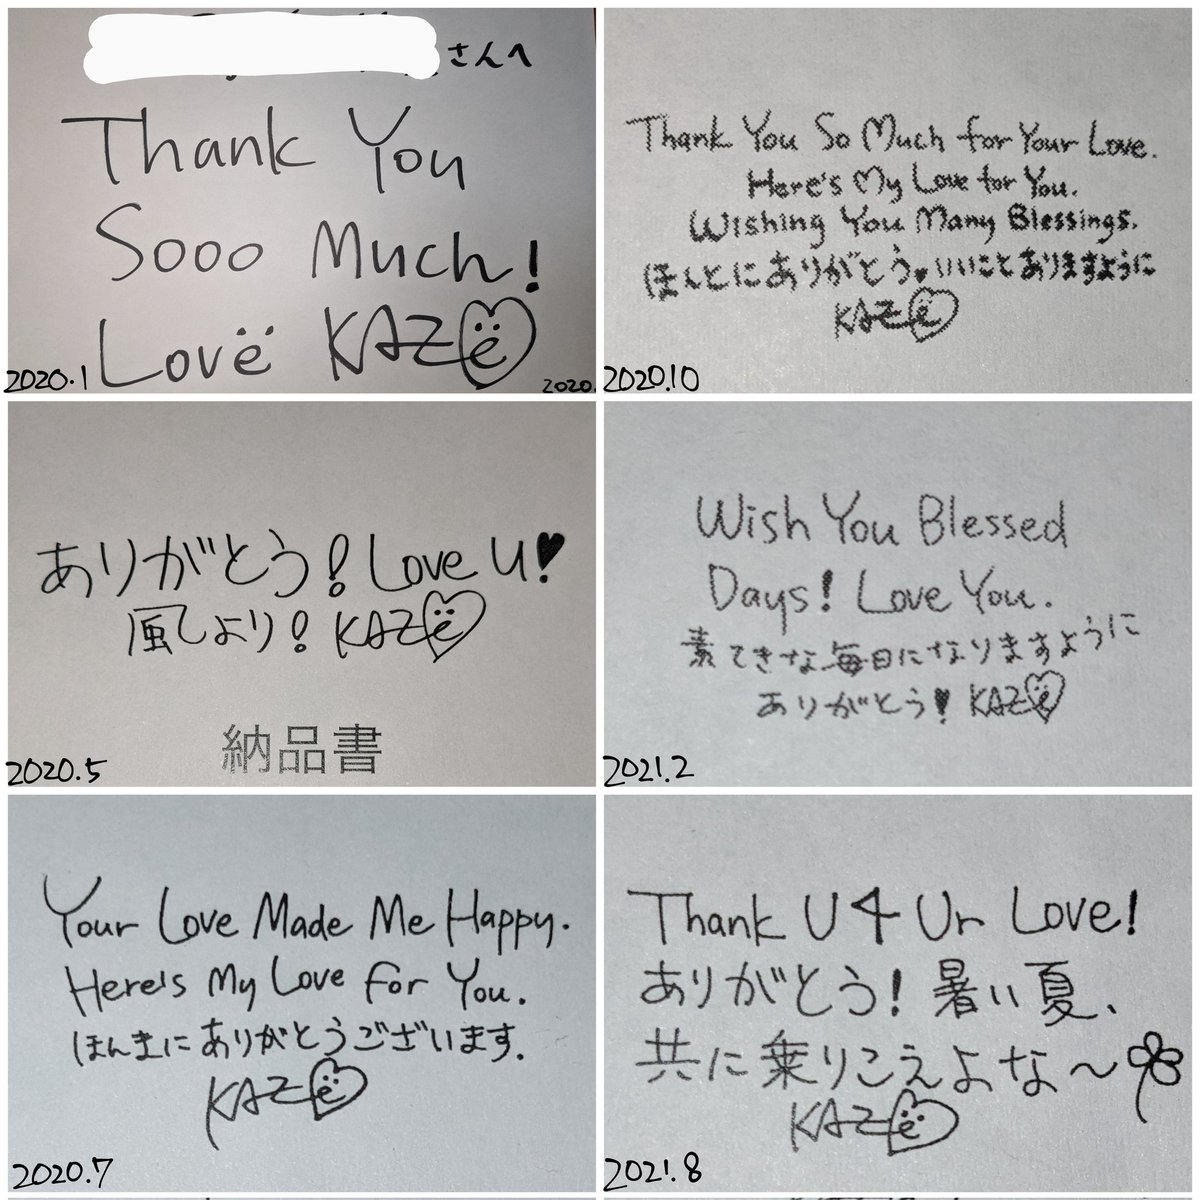 さんへ
Thank You
Sooo Much!
Love KAZE
2020.1
2020.
Thank You So Much for Your Love.
Here's My Love for You.
Wishing You Many Blessings.
ほんとにありがとう♥いいことありますように
KAZE
2020.10
ありがとう! Love U!♥
風より! KAZE
納品書
2020.5
Wish You Blessed
Days! Love You.
素てきな毎日になりますように
ありがとう! KAZE
2021.2
Your Love Made Me Happy.
Here's My Love for You.
ほんまにありがとうございます.
KAZE
2020.7
Thank U 4 Ur Love!
ありがとう! 暑い夏、
共に乗りこえよな〜
KAZE
2021.8